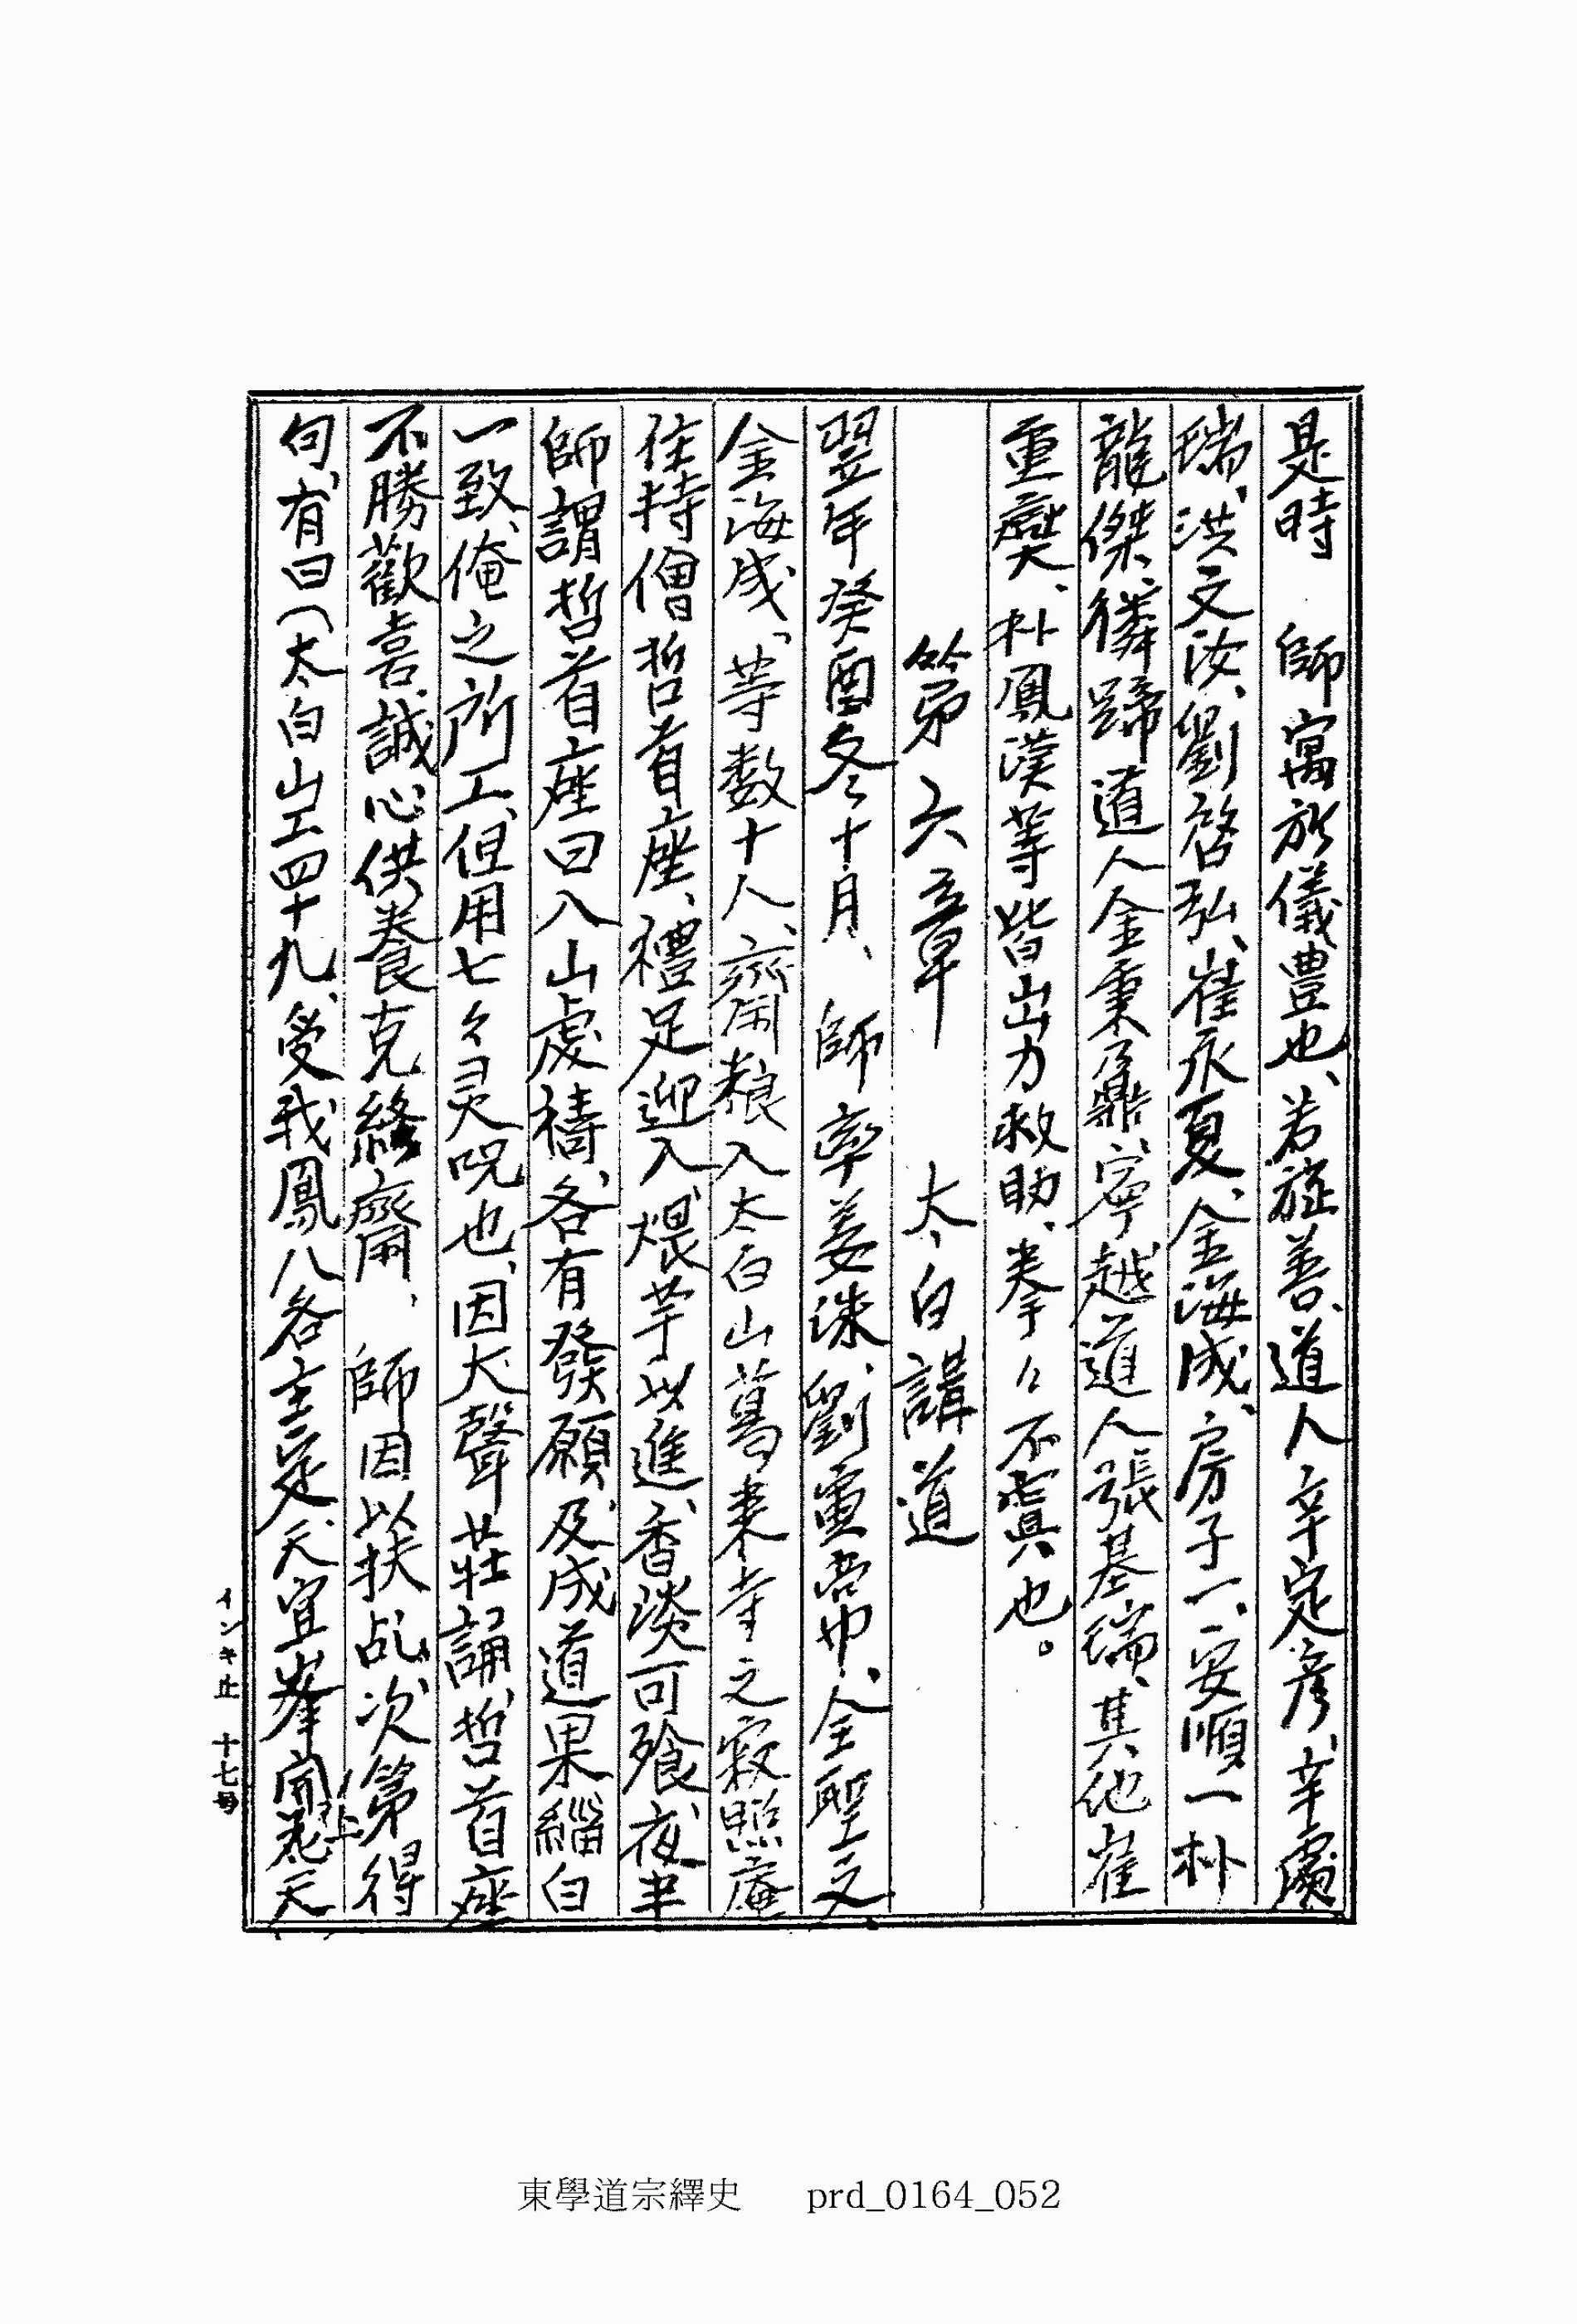 是時 師寓於儀豊也、若旌善、道人辛定彦、辛處
瑞、洪文汝、劉啓弘、崔永夏、金海成、房子一、安順一朴
龍傑、獜蹄道人金秉鼐、寧越道人張基瑞、其他崔
重爕、朴鳳漢等皆出力救助、拳々不置也。
第六章 太白講道
翌年癸酉冬十月、 師率姜洙、劉寅常、全聖文
金海成、等数十人、齋粮入太白山葛來寺之寂照庵
住持僧哲首座、禮足迎入、煨芋以進、香淡可飱、夜半
師謂哲首座曰入山處禱、各有發願、及成道果緇白
一致、俺之所工、但用七々灵呪也、因大聲莊誦、哲首座
不勝歡喜、誠心供養克終齋、 師因以扶乩、次第得
句、有曰(太白山工四十九、受我鳳八各主定、天宜峯上開花天
インキ止 十七号
東學道宗繹史 prd_0164_052